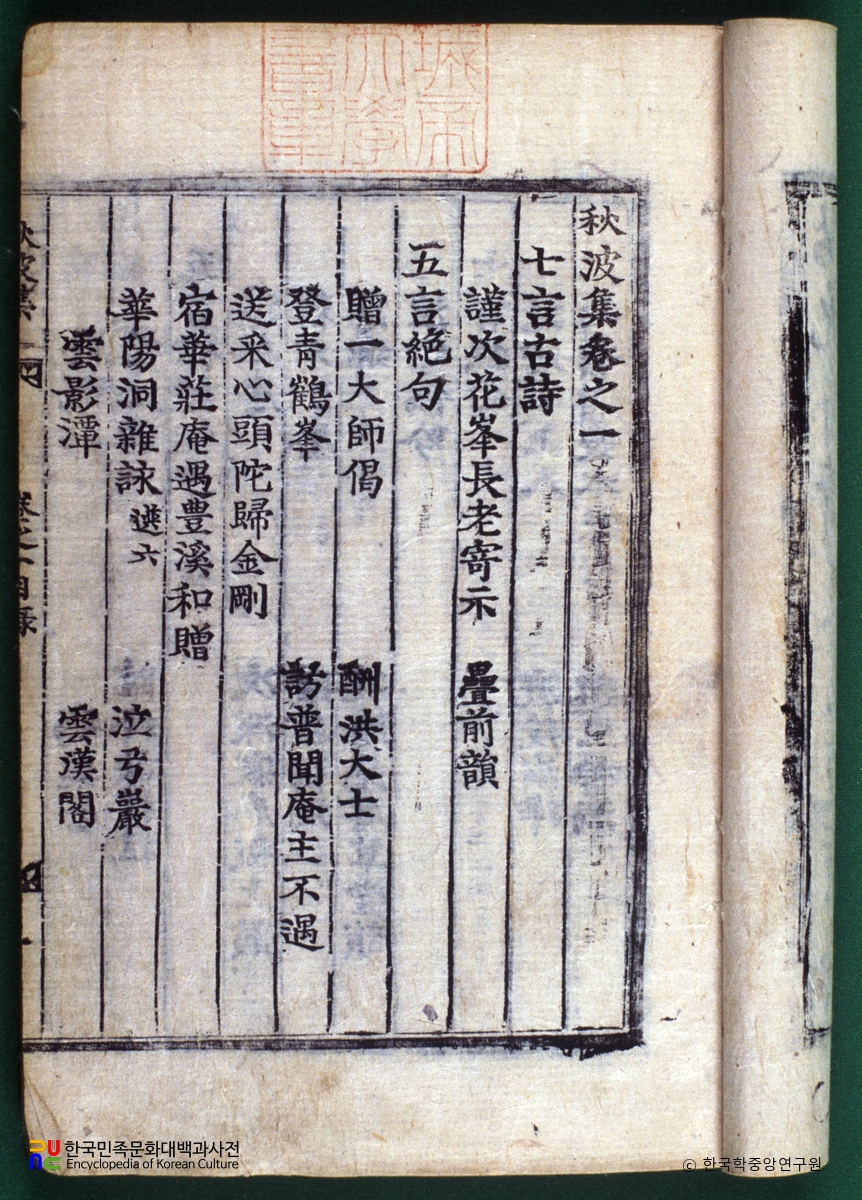 秋波集卷之一
七言古詩
謹次花峯長老寄示 疊前韻
五言絶句
贈一大師偈 酬洪大士
登青鶴峯 訪普聞庵主不遇
送采心頭陀歸金剛
宿華莊庵遇豊溪和贈
華陽洞雜詠 選六 泣弓巖
雲影潭 雲漢閣
秋波集 卷之一目錄
城帝
大學
書章
한국민족문화대백과사전
Encyclopedia of Korean Culture
ⓒ 한국학중앙연구원